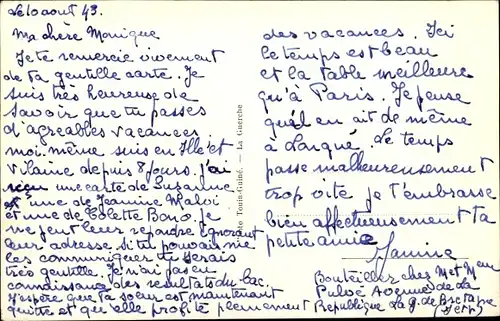 Le 10 août 43.
Ma chère Monique
Je te remercie vivement
de ta gentille carte. Je
suis très heureuse de
savoir que tu passes
d'agréables vacances
moi-même suis en Ille et
Vilaine depuis 8 jours. j'ai
reçu une carte de Suzanne
une de Jeannine
et une de Colette Bono. Je
ne peut leur repondre ignorant
leur adresse, si tu pouvais me
les communiquer tu serais
très gentille. Je n'ai pas eu
connaissance des resultats du bac.
J'espère que ta soeur est maintenant
guitte et que elle profite pleinement
des vacances. Ici
le temps est beau
et la table meilleure
qu'à Paris. Je pense
qu'il en ait de même
à Le temps
passe malheureusement
trop vite je t'embrasse
bien affectueusement ta
petite amie
Janine
Bouteiller chez Mr et Mme
Avenue de la
Republique La G. de Bretagne
to Tonin-Guiné. — La Guerche